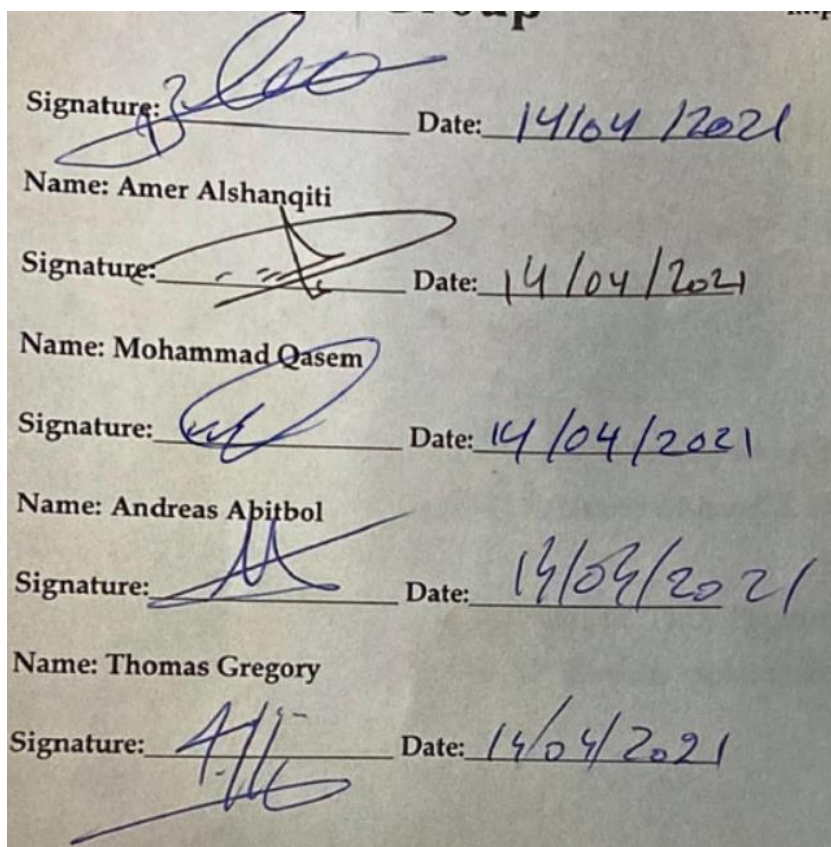 Signature: Date: 14/04/2021
Name: Amer Alshanqiti
Signature: Date: 14/04/2021
Name: Mohammad Qasem
Signature: Date: 14/04/2021
Name: Andreas Abitbol
Signature: Date: 14/04/2021
Name: Thomas Gregory
Signature: Date: 14/04/2021